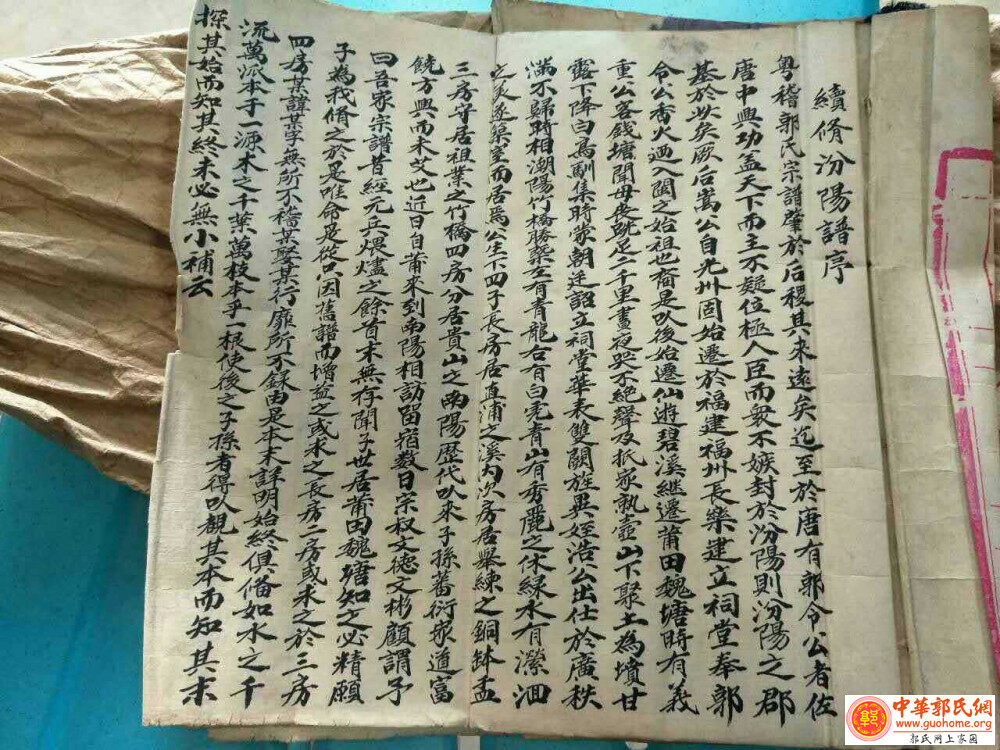 續脩汾陽譜序
粵稽郭氏宗譜肇於后稷其来遠矣迄至於唐有郭令公者佐
唐中興功盖天下而主不疑位極人臣而衆不嫉封於汾陽則汾陽之郡
基於此矣厥后嵩公自光州固始遷於福建福州長樂建立祠堂奉郭
令公香火迺入閩之始祖也裔是以後始遷仙遊碧溪継遷莆田魏塘時有義
重公客錢塘聞母喪跣足二千里晝夜哭不絕聲及抵家執壺山下聚土為墳甘
露下降白烏馴集時蒙朝廷詔立祠堂華表雙闕旌異姪浩公出仕於廣秩
滿不歸時相潮陽竹橋勝槩左有青龍右有白虎青山有秀麗之休綠水有瀠洄
之美遂築室而居焉公生下四子長房居直浦之溪内次房居舉練之銅鉢盂
三房守居祖業之竹橋四房分居貴山之南陽歷代以來子孫蕃衍家道富
饒方興而未艾也近日自莆來到南陽相訪留宿數日宗叔文德文彬顧謂予
曰吾家宗譜昔經元兵煨燼之餘首末無存聞子世居莆田魏塘知之必精願
子為我脩之於是唯命是從只因舊譜而增益之或求之長房二房或求之於三房
四房某諱某字無所不稽某娶某行靡所不録由是本末詳明始終俱偹如水之千
流萬派本于一源木之千葉萬枝本乎一根使後之子孫者得以觀其本而知其末
探其始而知其終未必無小補云
中華郭氏網
www.guohome.org
郭氏网上家园